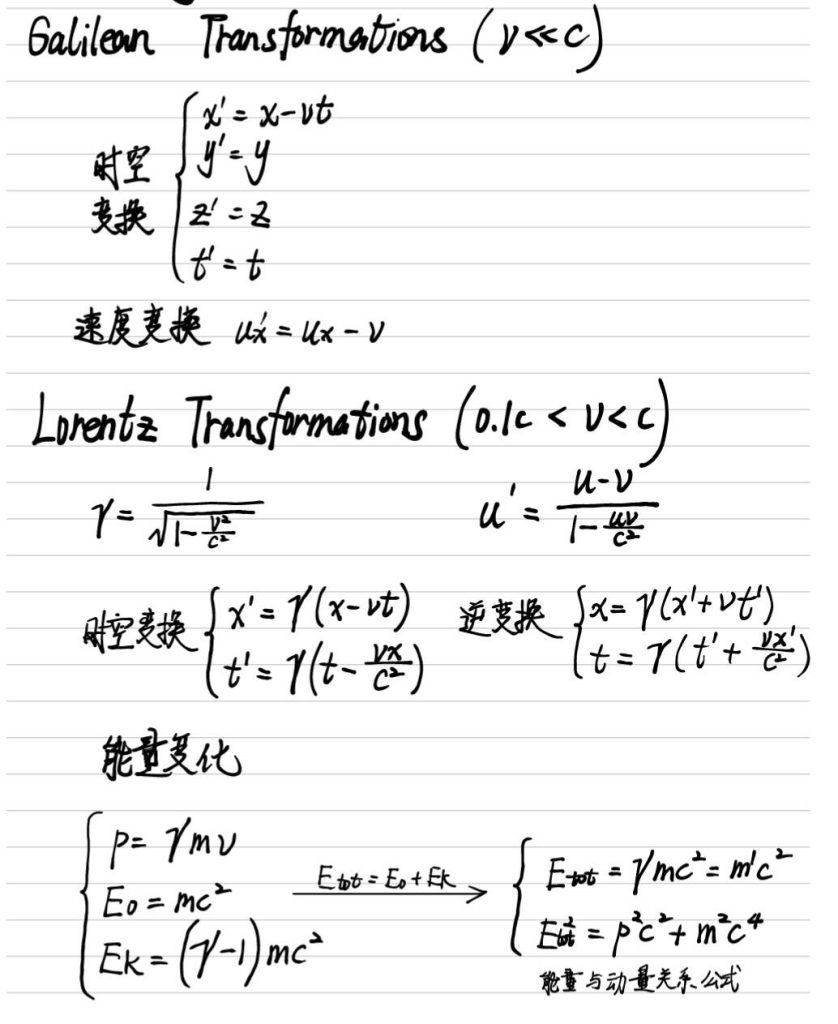 Galilean Transformations (v≪c)
时空变换 { x' = x-vt
y' = y
z' = z
t' = t
速度变换 ux' = ux - v
Lorentz Transformations (0.1c < v < c)
γ = 1/√(1-v²/c²) u' = (u-v)/(1-uv/c²)
时空变换 { x' = γ(x-vt) 逆变换 { x = γ(x'+vt')
t' = γ(t - vx/c²) t = γ(t' + vx'/c²)
能量变化
{ p = γmv
E₀ = mc² Etot = E₀ + Ek → { Etot = γmc² = m'c²
Ek = (γ-1)mc² Etot² = p²c² + m²c⁴
能量与动量关系公式